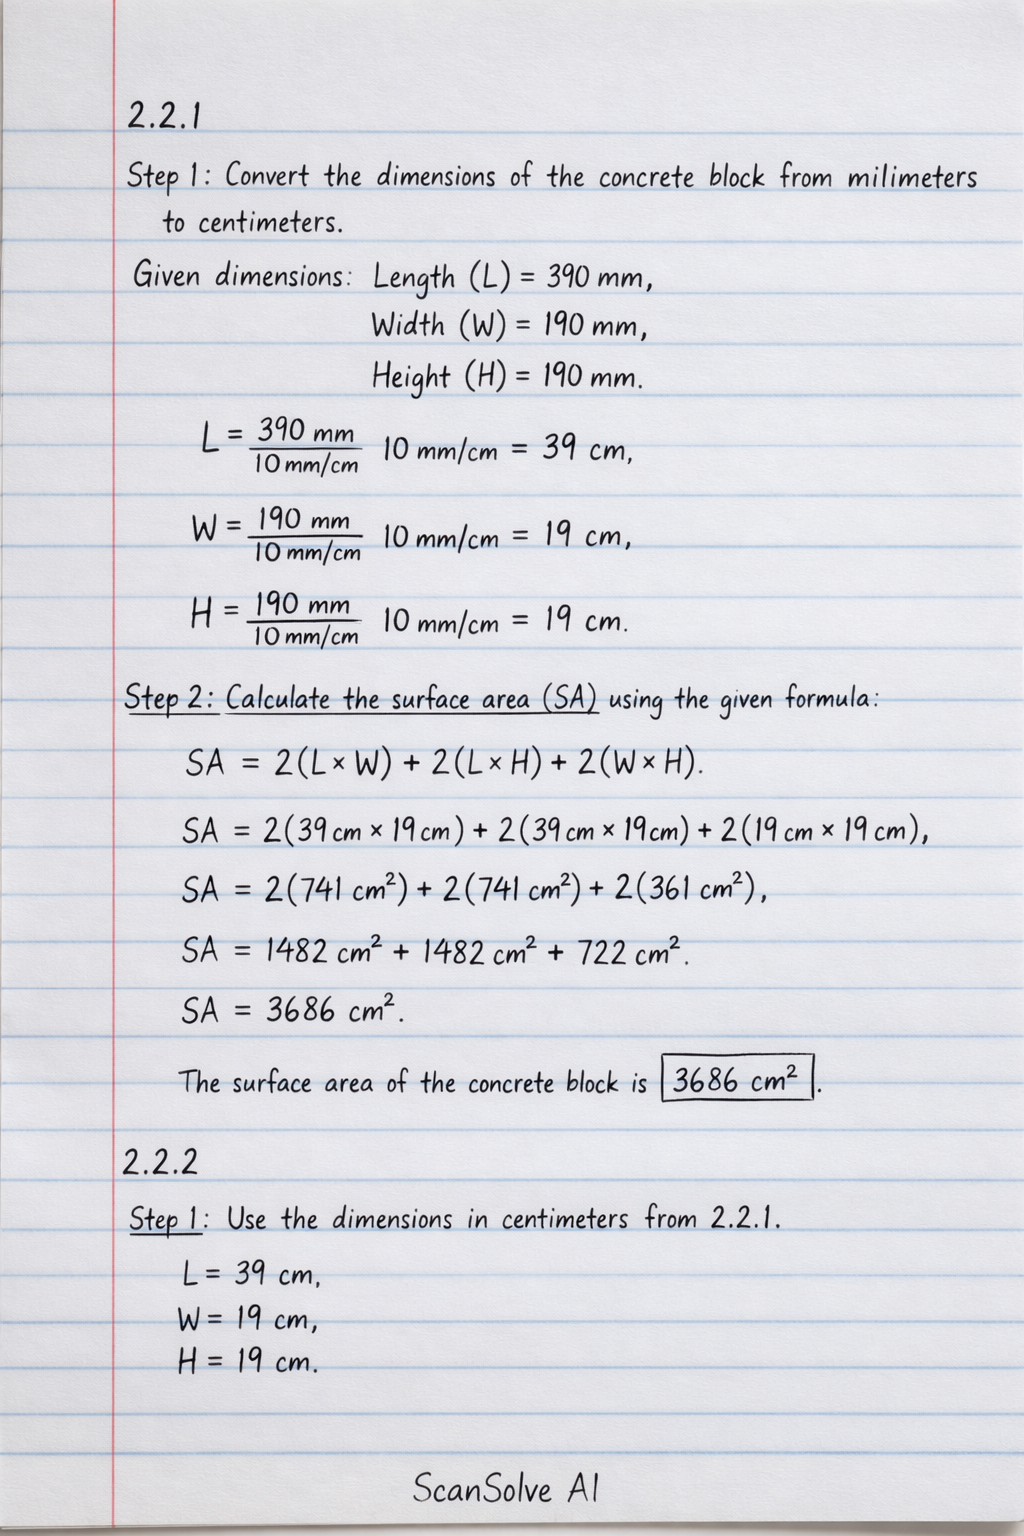 2.2.1
Step 1: Convert the dimensions of the concrete block from milimeters
to centimeters.
Given dimensions: Length (L) = 390 mm,
Width (W) = 190 mm,
Height (H) = 190 mm.
L = 390 mm / 10 mm/cm 10 mm/cm = 39 cm,
W = 190 mm / 10 mm/cm 10 mm/cm = 19 cm,
H = 190 mm / 10 mm/cm 10 mm/cm = 19 cm.
Step 2: Calculate the surface area (SA) using the given formula:
SA = 2(L × W) + 2(L × H) + 2(W × H).
SA = 2(39 cm × 19 cm) + 2(39 cm × 19 cm) + 2(19 cm × 19 cm),
SA = 2(741 cm²) + 2(741 cm²) + 2(361 cm²),
SA = 1482 cm² + 1482 cm² + 722 cm².
SA = 3686 cm².
The surface area of the concrete block is 3686 cm².
2.2.2
Step 1: Use the dimensions in centimeters from 2.2.1.
L = 39 cm,
W = 19 cm,
H = 19 cm.
ScanSolve AI